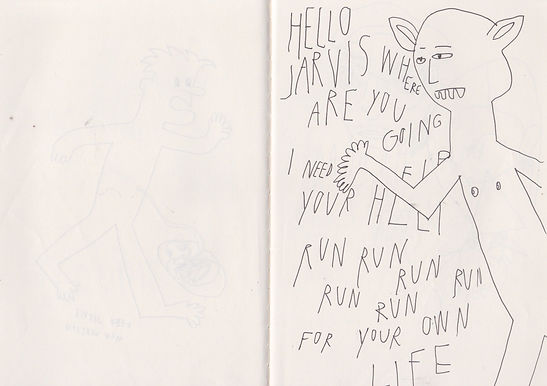 HELLO
JARVIS WHERE
ARE YOU
GOING
I NEED
YOUR HELP
RUN RUN
RUN RUN
RUN RUN
FOR YOUR OWN
LIFE